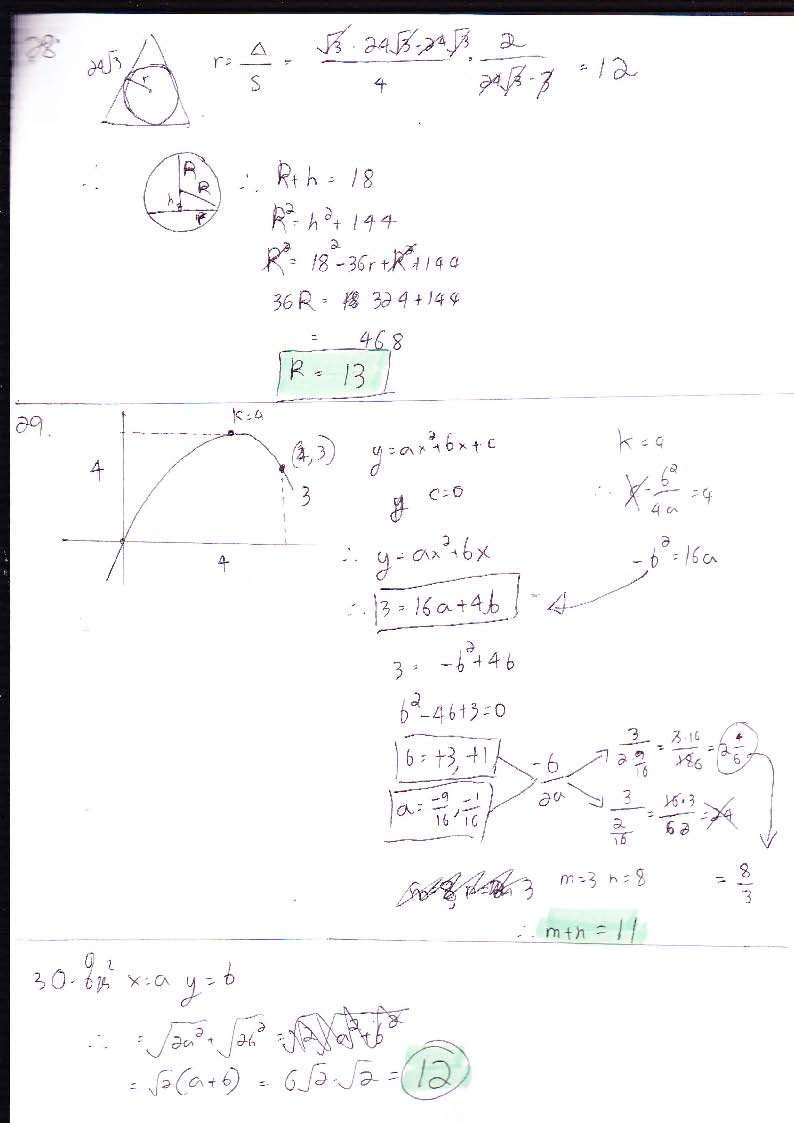 28
24√3
r
r = Δ/S = √3 · 24√3 · 24√3 / 4 · 2 / 24√3 · 3 = 12
∴
R
R
h
r
∴ R + h = 18
R² = h² + 144
R² = 18² - 36r + R² + 144
36R = 324 + 144
= 468
R = 13
29.
k = 4
4
(4, 3)
3
4
y = ax² + bx + c
y c = 0
∴ y = ax² + bx
∴ 3 = 16a + 4b
k = 4
∴ - b²/4a = 4
-b² = 16a
3 = -b² + 4b
b² - 4b + 3 = 0
b = +3, +1
a = -9/16, -1/16
-b/2a
3 / 2 9/16 = 3·16 / 18 6 = 2 4/6
3 / 2/16 = 16·3 / 2 = 24
= 8/3
m = 3 n = 8
∴ m + n = 11
30. x = a y = b
∴ = √2a² + √2b² = √2 √a² + b²
= √2 (a + b) = 6√2 · √2 = 12